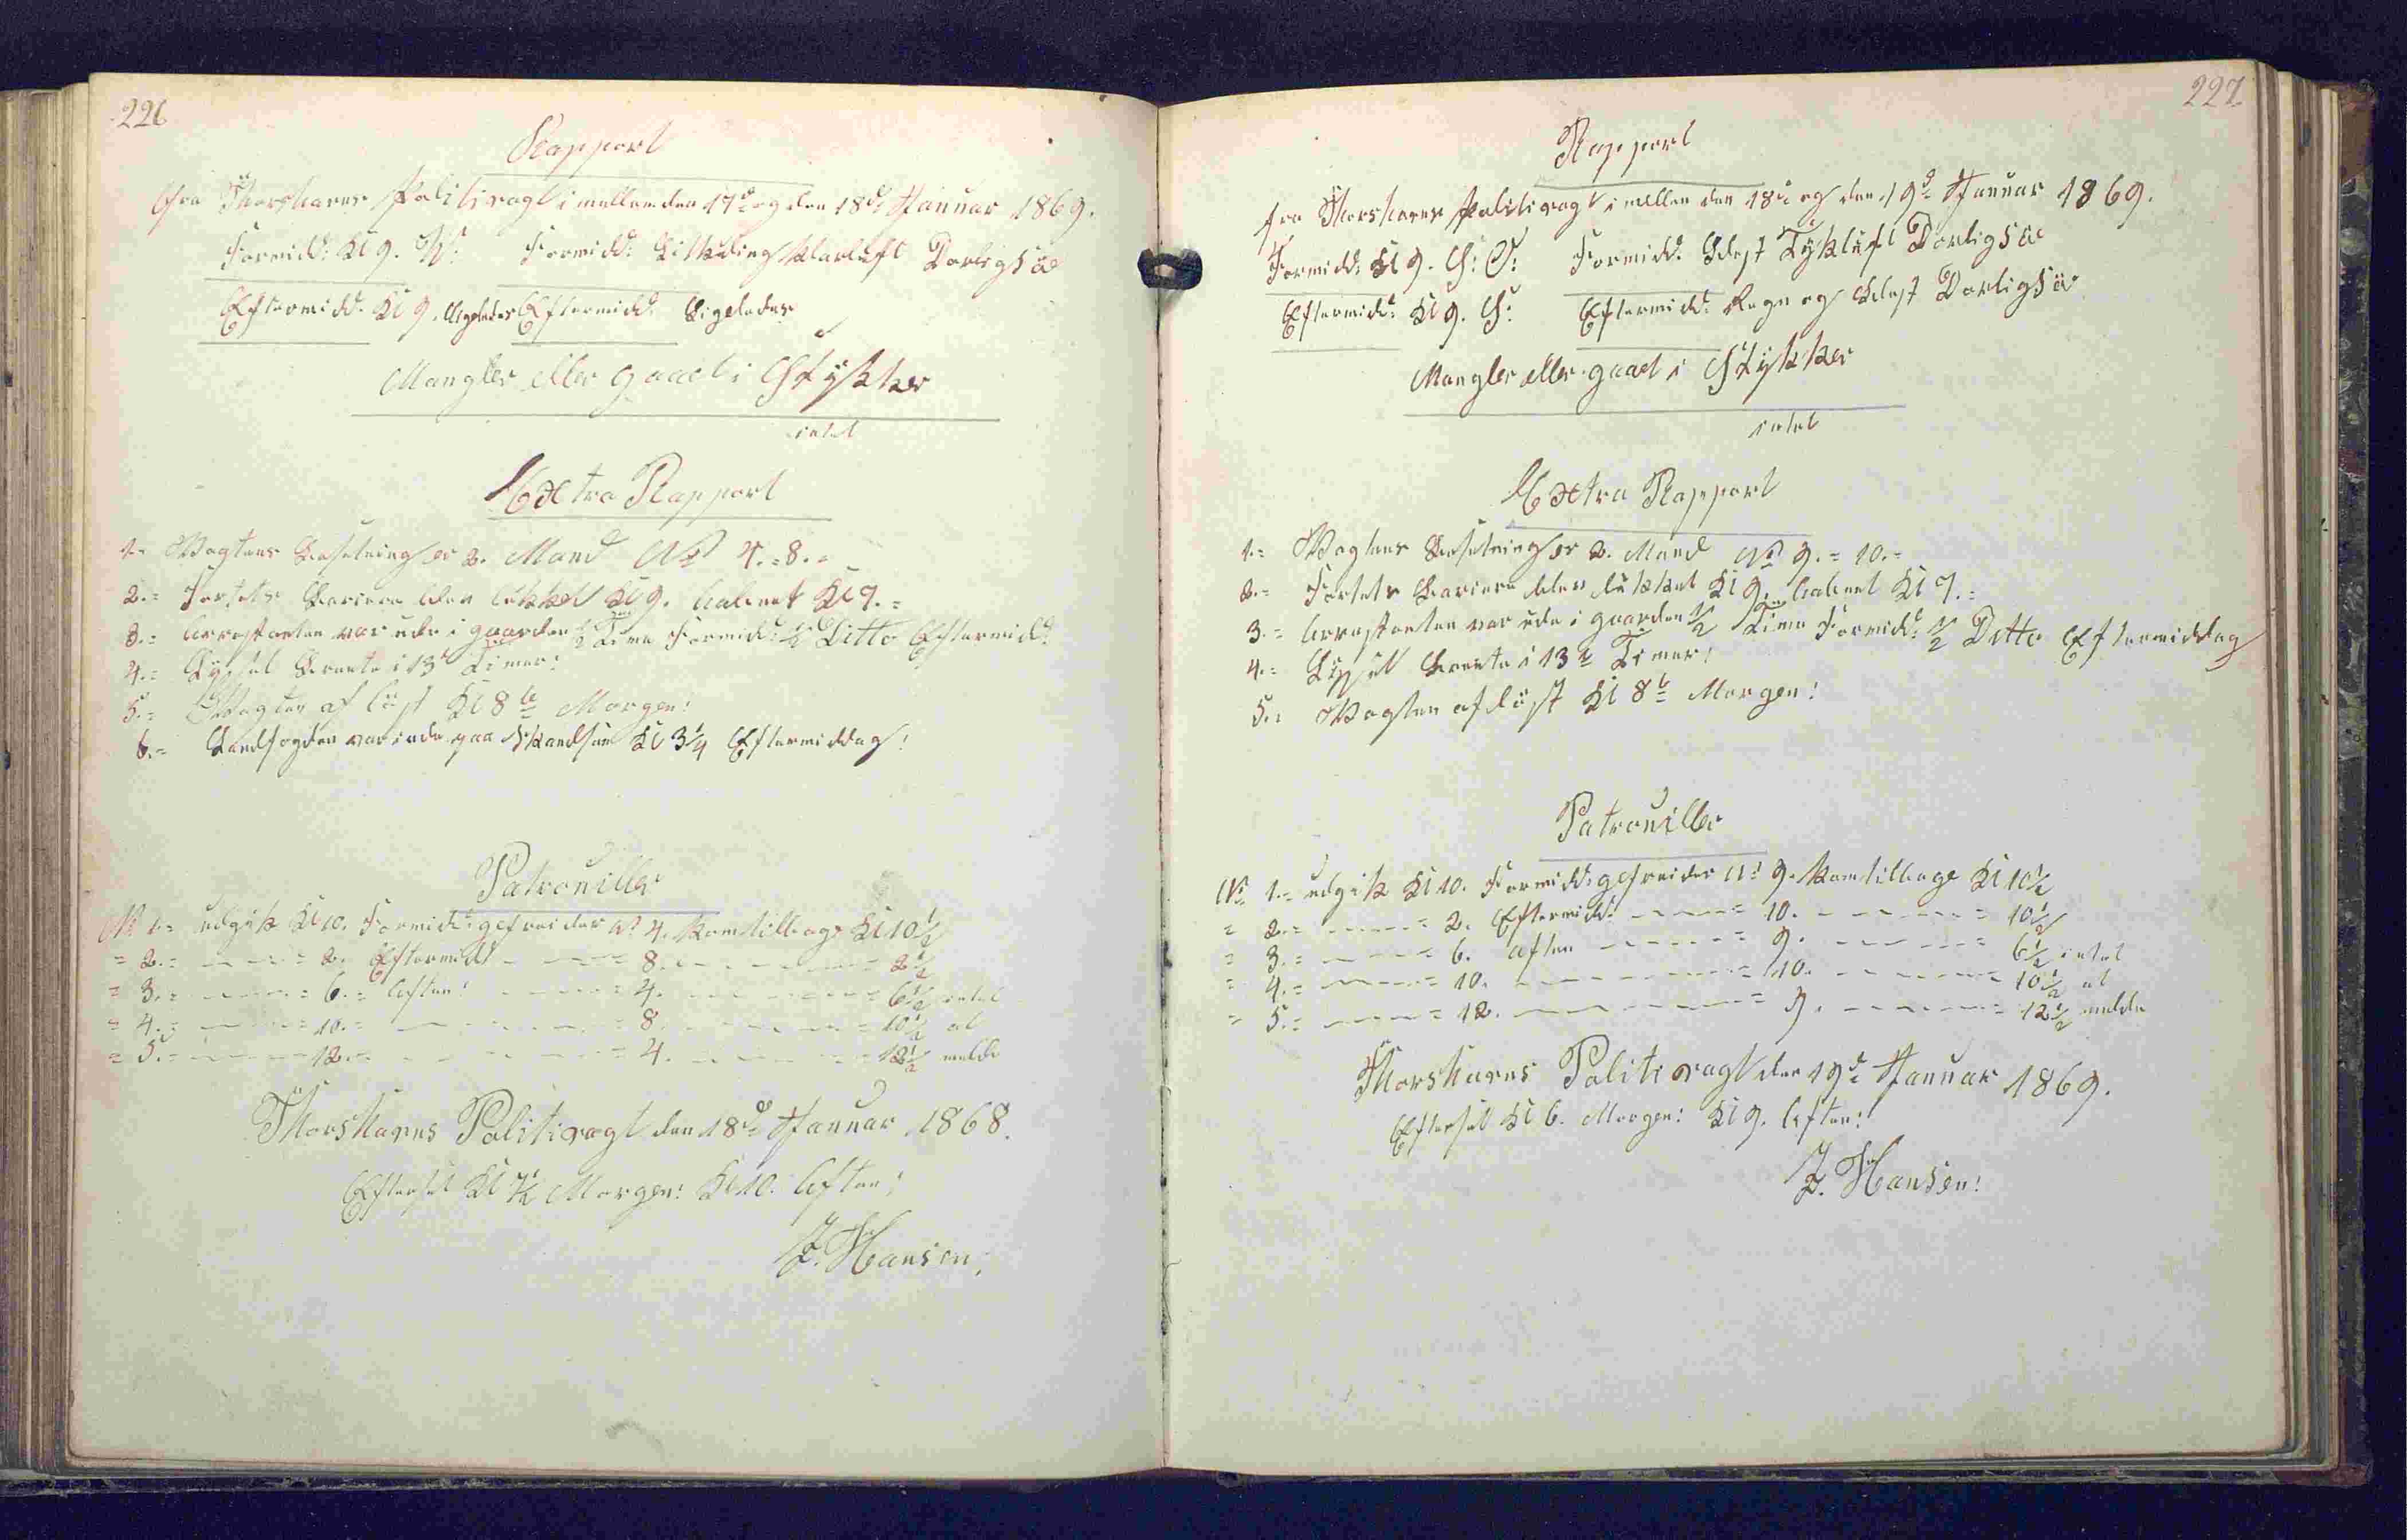 226
Rapport
fra Thorshavns Politivagt imellem den 17de og den 18de Januar 1869.
Formidd: Kl 9. N: Formidd: Liitküling Klarlüft Dorligsöe
Eftermidd: Kl 9. ligeledes Eftermidd: Ligeledes
Mangler eller gaaet i Stÿkker
intet
Extra Rapport
1.= Vagtens Besetning er 2. Mand No 4.=8.=
2.= Fortets Bariere blev lükket Kl 9. aabnet Kl 7.=
3.= Arrestanten var ude i gaarden 1/2 Time Formidd: 1/2 Ditto Eftermidd:
4.= Lÿset brente i 13 Timer!
5.= Vagten aflöst Kl 8te Morgen!
6.= Landfogden var inde paa Skandsen Kl 3 1/4 Eftermiddag!
Patrouiller
No 1.= udgik Kl 10. Formidd: gefreider No 4. kom tilbage Kl 10 1/2
= 2.= — = 2. Eftermidd — = 8. — = 2 1/2
= 3.= — = 6.= Aften! — = 4. — = 6 1/2 intet
= 4.= — = 10.= — = 8. — = 10 1/2 at
= 5.= — 12.= — = 4. — = 12 1/2 melde
Thorshavns Politivagt den 18de Januar 1868.
Efterset Kl 7 1/2 Morgen: Kl 10. Aften!
J. Hansen;
227
Rapport
fra Thorshavns Politivagt imellem den 18de og den 19de Januar 1869.
Formidd: Kl 9. S: O: Formidd: Blest Tÿklüft Dorligsöe
Eftermidd: Kl 9. S: Eftermidd: Regn og Blest Dorligsöe
Mangler eller gaaet i Stÿkker
intet
Extra Rapport
1.= Vagtens Besetning er 2. Mand No 9.= 10.=
2.= Fortets Bariere blev lükket Kl 9. aabnet Kl 7.=
3.= Arrestanten var ude i gaarden 1/2 Time Formidd: 1/2 Ditto Eftermiddag
4.= Lÿset brente i 13 Timer!
5.= Vagten aflöst Kl 8te Morgen!
Patrouiller
No 1.= udgik Kl 10. Formidd: gefreider No 9. kom tilbage Kl 10 1/2
= 2.= — = 2. Eftermidd: — = 10. — = 10 1/2
= 3.= — = 6. Aften — = 9. — = 6 1/2 intet
= 4.= — = 10. — = 10. — = 10 1/2 at
= 5.= — = 12. — = 9. — = 12 1/2 melde
Thorshavns Politivagt den 19de Januar 1869.
Efterset Kl 6. Morgen: Kl 9. Aften!
J. Hansen!